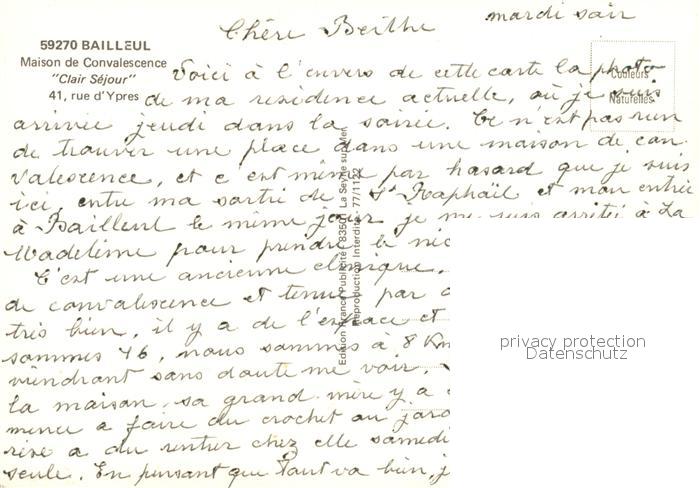 mardi soir
Chère Berthe
59270 BAILLEUL
Maison de Convalescence
"Clair Séjour"
41, rue d'Ypres
Couleurs
Naturelles
Voici à l'envers de cette carte la photo
de ma residence actuelle, où je suis
arrivée jeudi dans la soirée. Ce n'est pas rien
de trouver une place dans une maison de con-
valescence, et c'est même par hasard que je suis
ici, entre ma sortie de St Raphaël et mon entrée
à Bailleul le même jour je me suis arrêtée à La
Madeleine pour prendre le
C'est une ancienne clinique,
de convalescence et tenue par
très bien, il y a de l'espace et
sommes 46, nous sommes à 8 Km
viendront sans doute me voir
la maison, sa grand mère y a
mence a faire du crochet au
a du rentrer chez elle samedi
seule. En pensant que tout va bien, j
Edition France Publicité 83500 La Seyne sur Mer
Reproduction Interdite 77/1122
privacy protection
Datenschutz